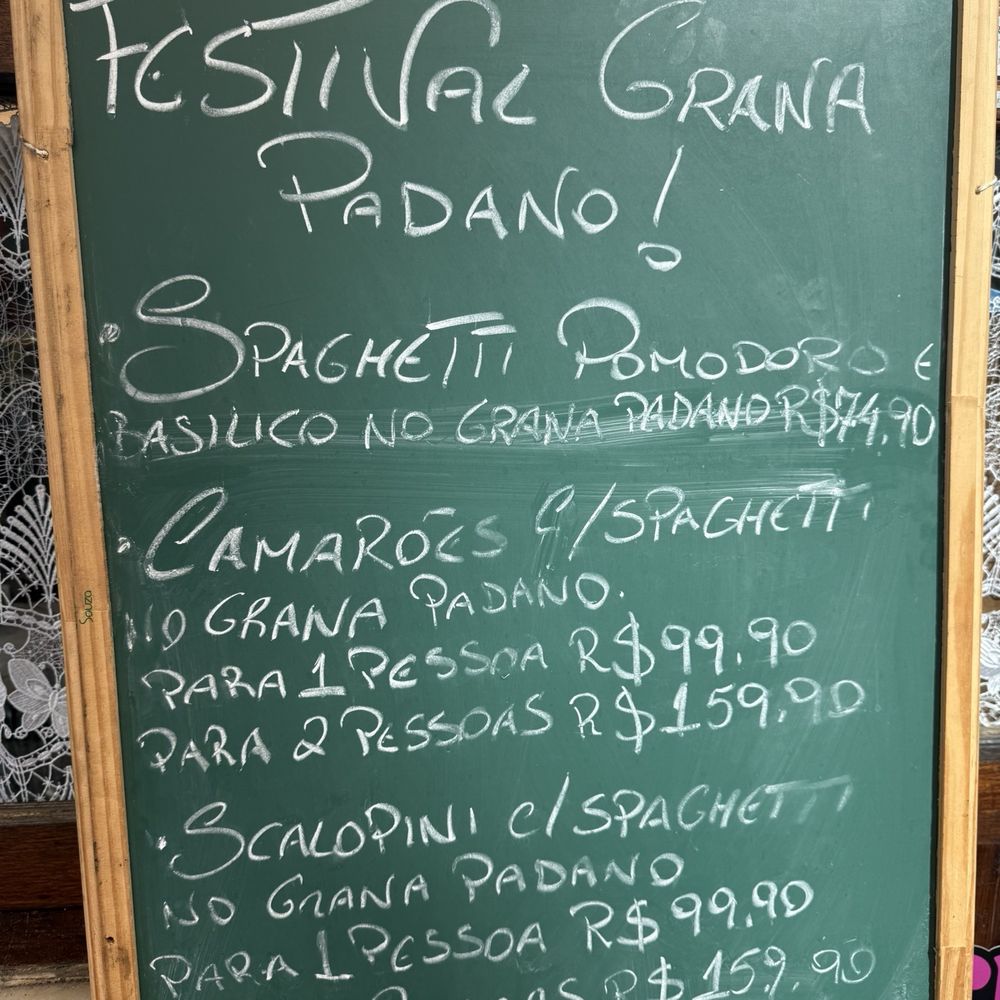 FESTIVAL GRANA
PADANO!
• SPAGHETTI POMODORO E
BASILICO NO GRANA PADANO R$74,90
• CAMARÕES C/SPAGHETTI
NO GRANA PADANO.
PARA 1 PESSOA R$99,90
PARA 2 PESSOAS R$159,90
• SCALOPINI C/SPAGHETTI
NO GRANA PADANO
PARA 1 PESSOA R$99,90
R$159,90
Souza